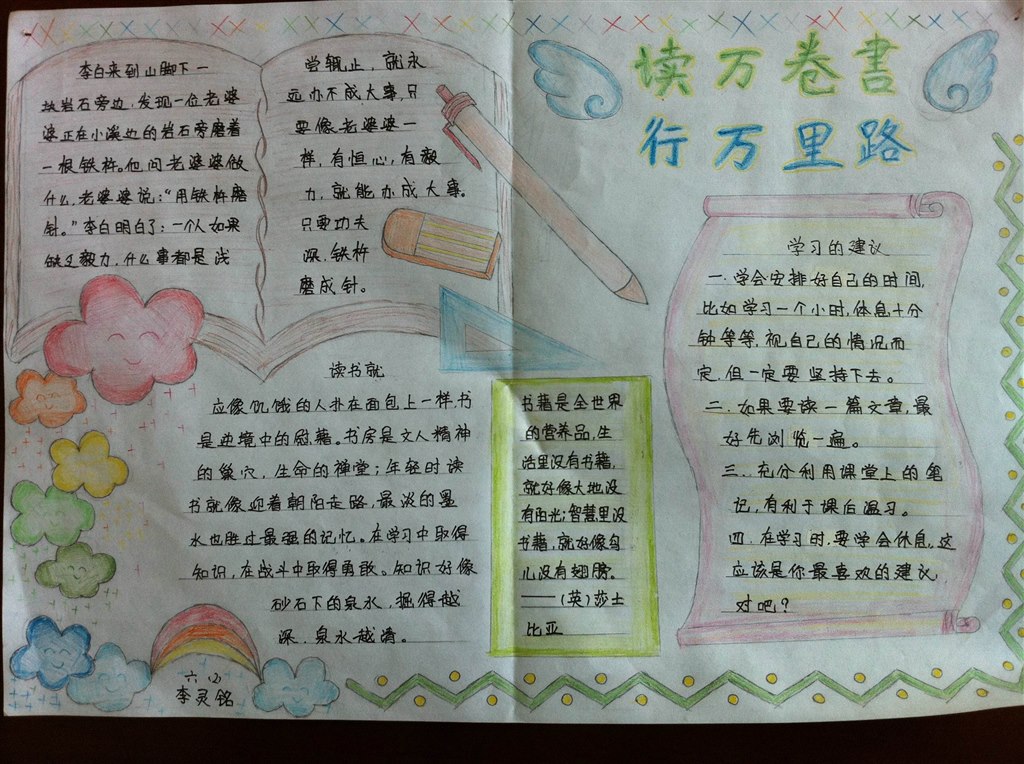 读万卷書
行万里路
李白来到山脚下一
块岩石旁边，发现一位老婆
婆正在小溪边的岩石旁磨着
一根铁杵。他问老婆婆做
什么，老婆婆说：“用铁杵磨
针。”李白明白了：一个人如果
缺乏毅力，什么事都是浅
尝辄止，就永
远办不成大事，只
要像老婆婆一
样，有恒心，有毅
力，就能办成大事。
只要功夫
深，铁杵
磨成针。
读书就
应像饥饿的人扑在面包上一样，书
是逆境中的慰藉。书房是文人精神
的巢穴，生命的禅堂；年轻时读
书就像迎着朝阳走路，最淡的墨
水也胜过最强的记忆。在学习中取得
知识，在战斗中取得勇敢。知识好像
砂石下的泉水，掘得越
深，泉水越清。
书籍是全世界
的营养品，生
活里没有书籍，
就好像大地没
有阳光；智慧里没
书籍，就好像鸟
儿没有翅膀。
——（英）莎士
比亚
学习的建议
一．学会安排好自己的时间，
比如学习一个小时，休息十分
钟等等，视自己的情况而
定，但一定要坚持下去。
二．如果要读一篇文章，最
好先浏览一遍。
三．充分利用课堂上的笔
记，有利于课后温习。
四．在学习时，要学会休息。这
应该是你最喜欢的建议，
对吧？
李灵铭